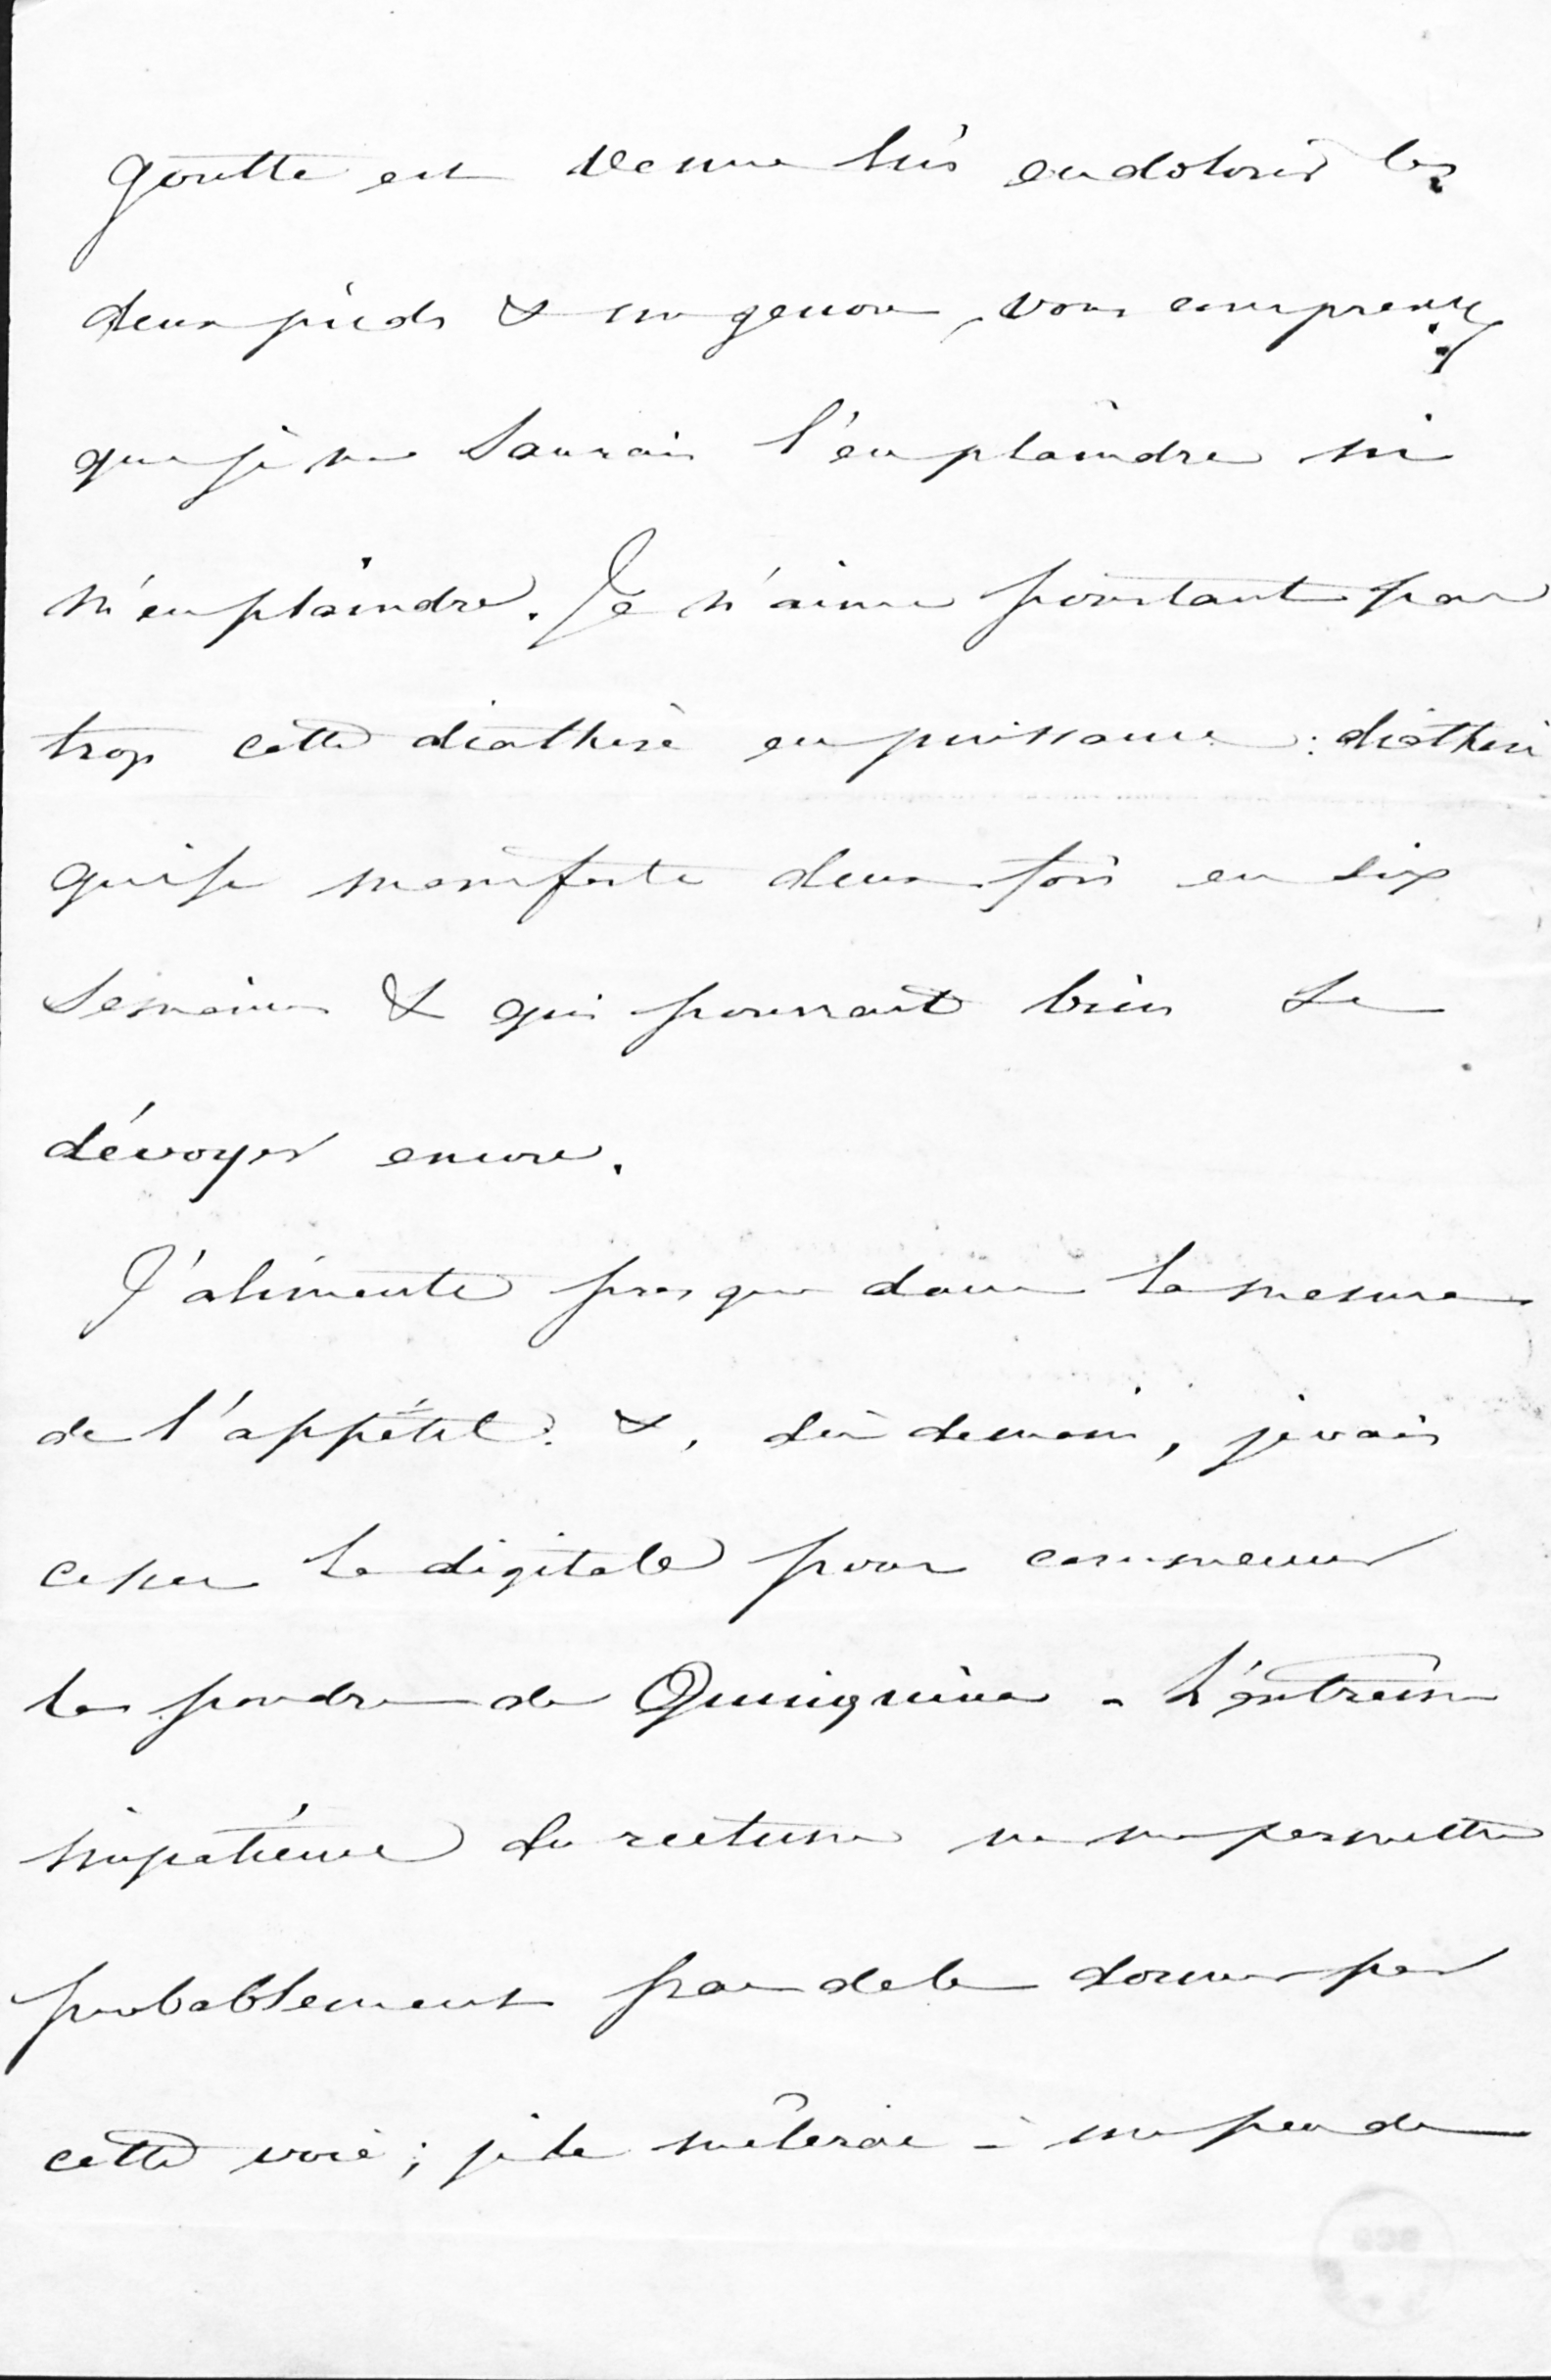 goutte est venue lui endolorir les
deux pieds & un genou, vous comprenez
que je ne saurais l'en plaindre ni
m'en plaindre. Je n'aime pourtant pas
trop cette diathèse en puissance : diathèse
qui se manifeste deux fois en six
semaines & qui pourrait bien se
dévoyer encore.
J'alimente presque dans la mesure
de l'appétit. &, dès demain, je vais
cesser la digitale pour commencer
la poudre de Quinquina - L'extrême
impatience du rectum ne me permettra
probablement pas de le donner par
cette voie ; je le mêlerai à un peu de